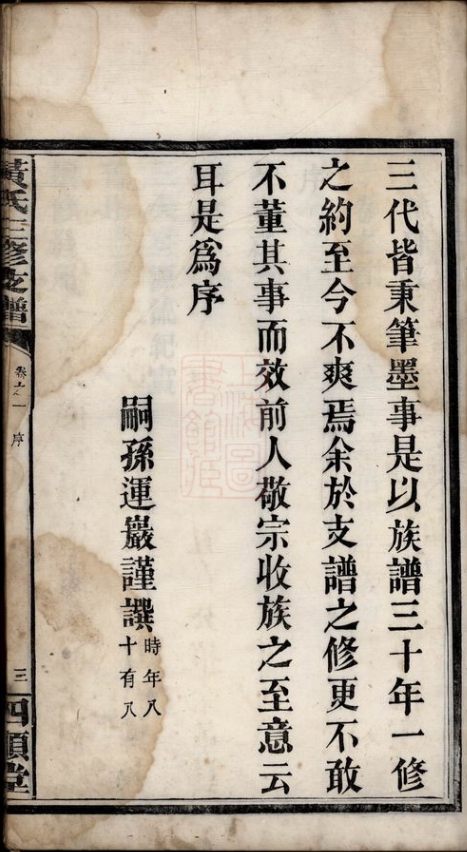 三代皆秉筆墨事是以族譜三十年一修
之約至今不爽焉余於支譜之修更不敢
不董其事而效前人敬宗收族之至意云
耳是爲序
嗣孫運巖謹譔
時年八
十有八
黃氏三修支譜
卷之一 序
三
上海圖
書館藏